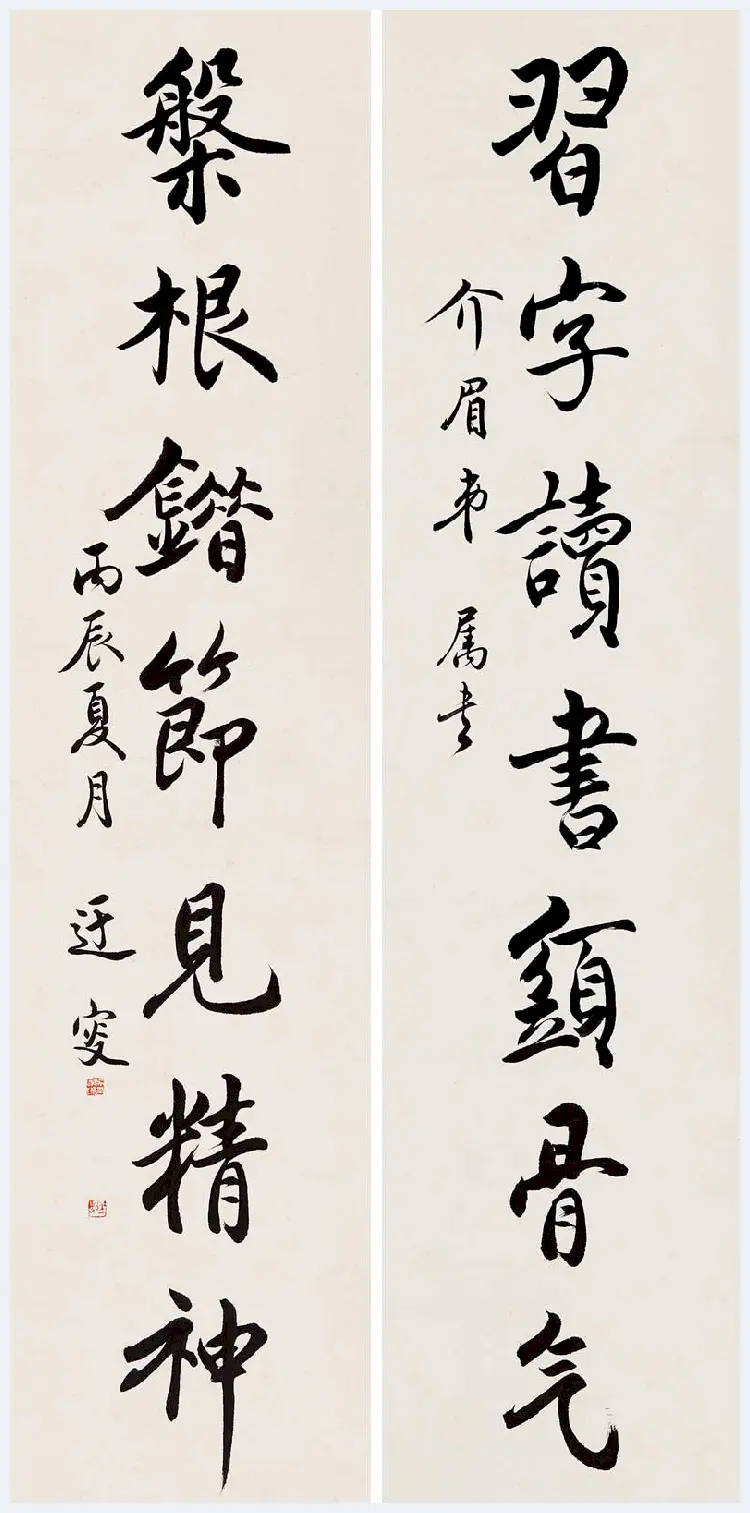 習字讀書骨气
介眉弟 属书
槃根錯節見精神
丙辰夏月 迂叜